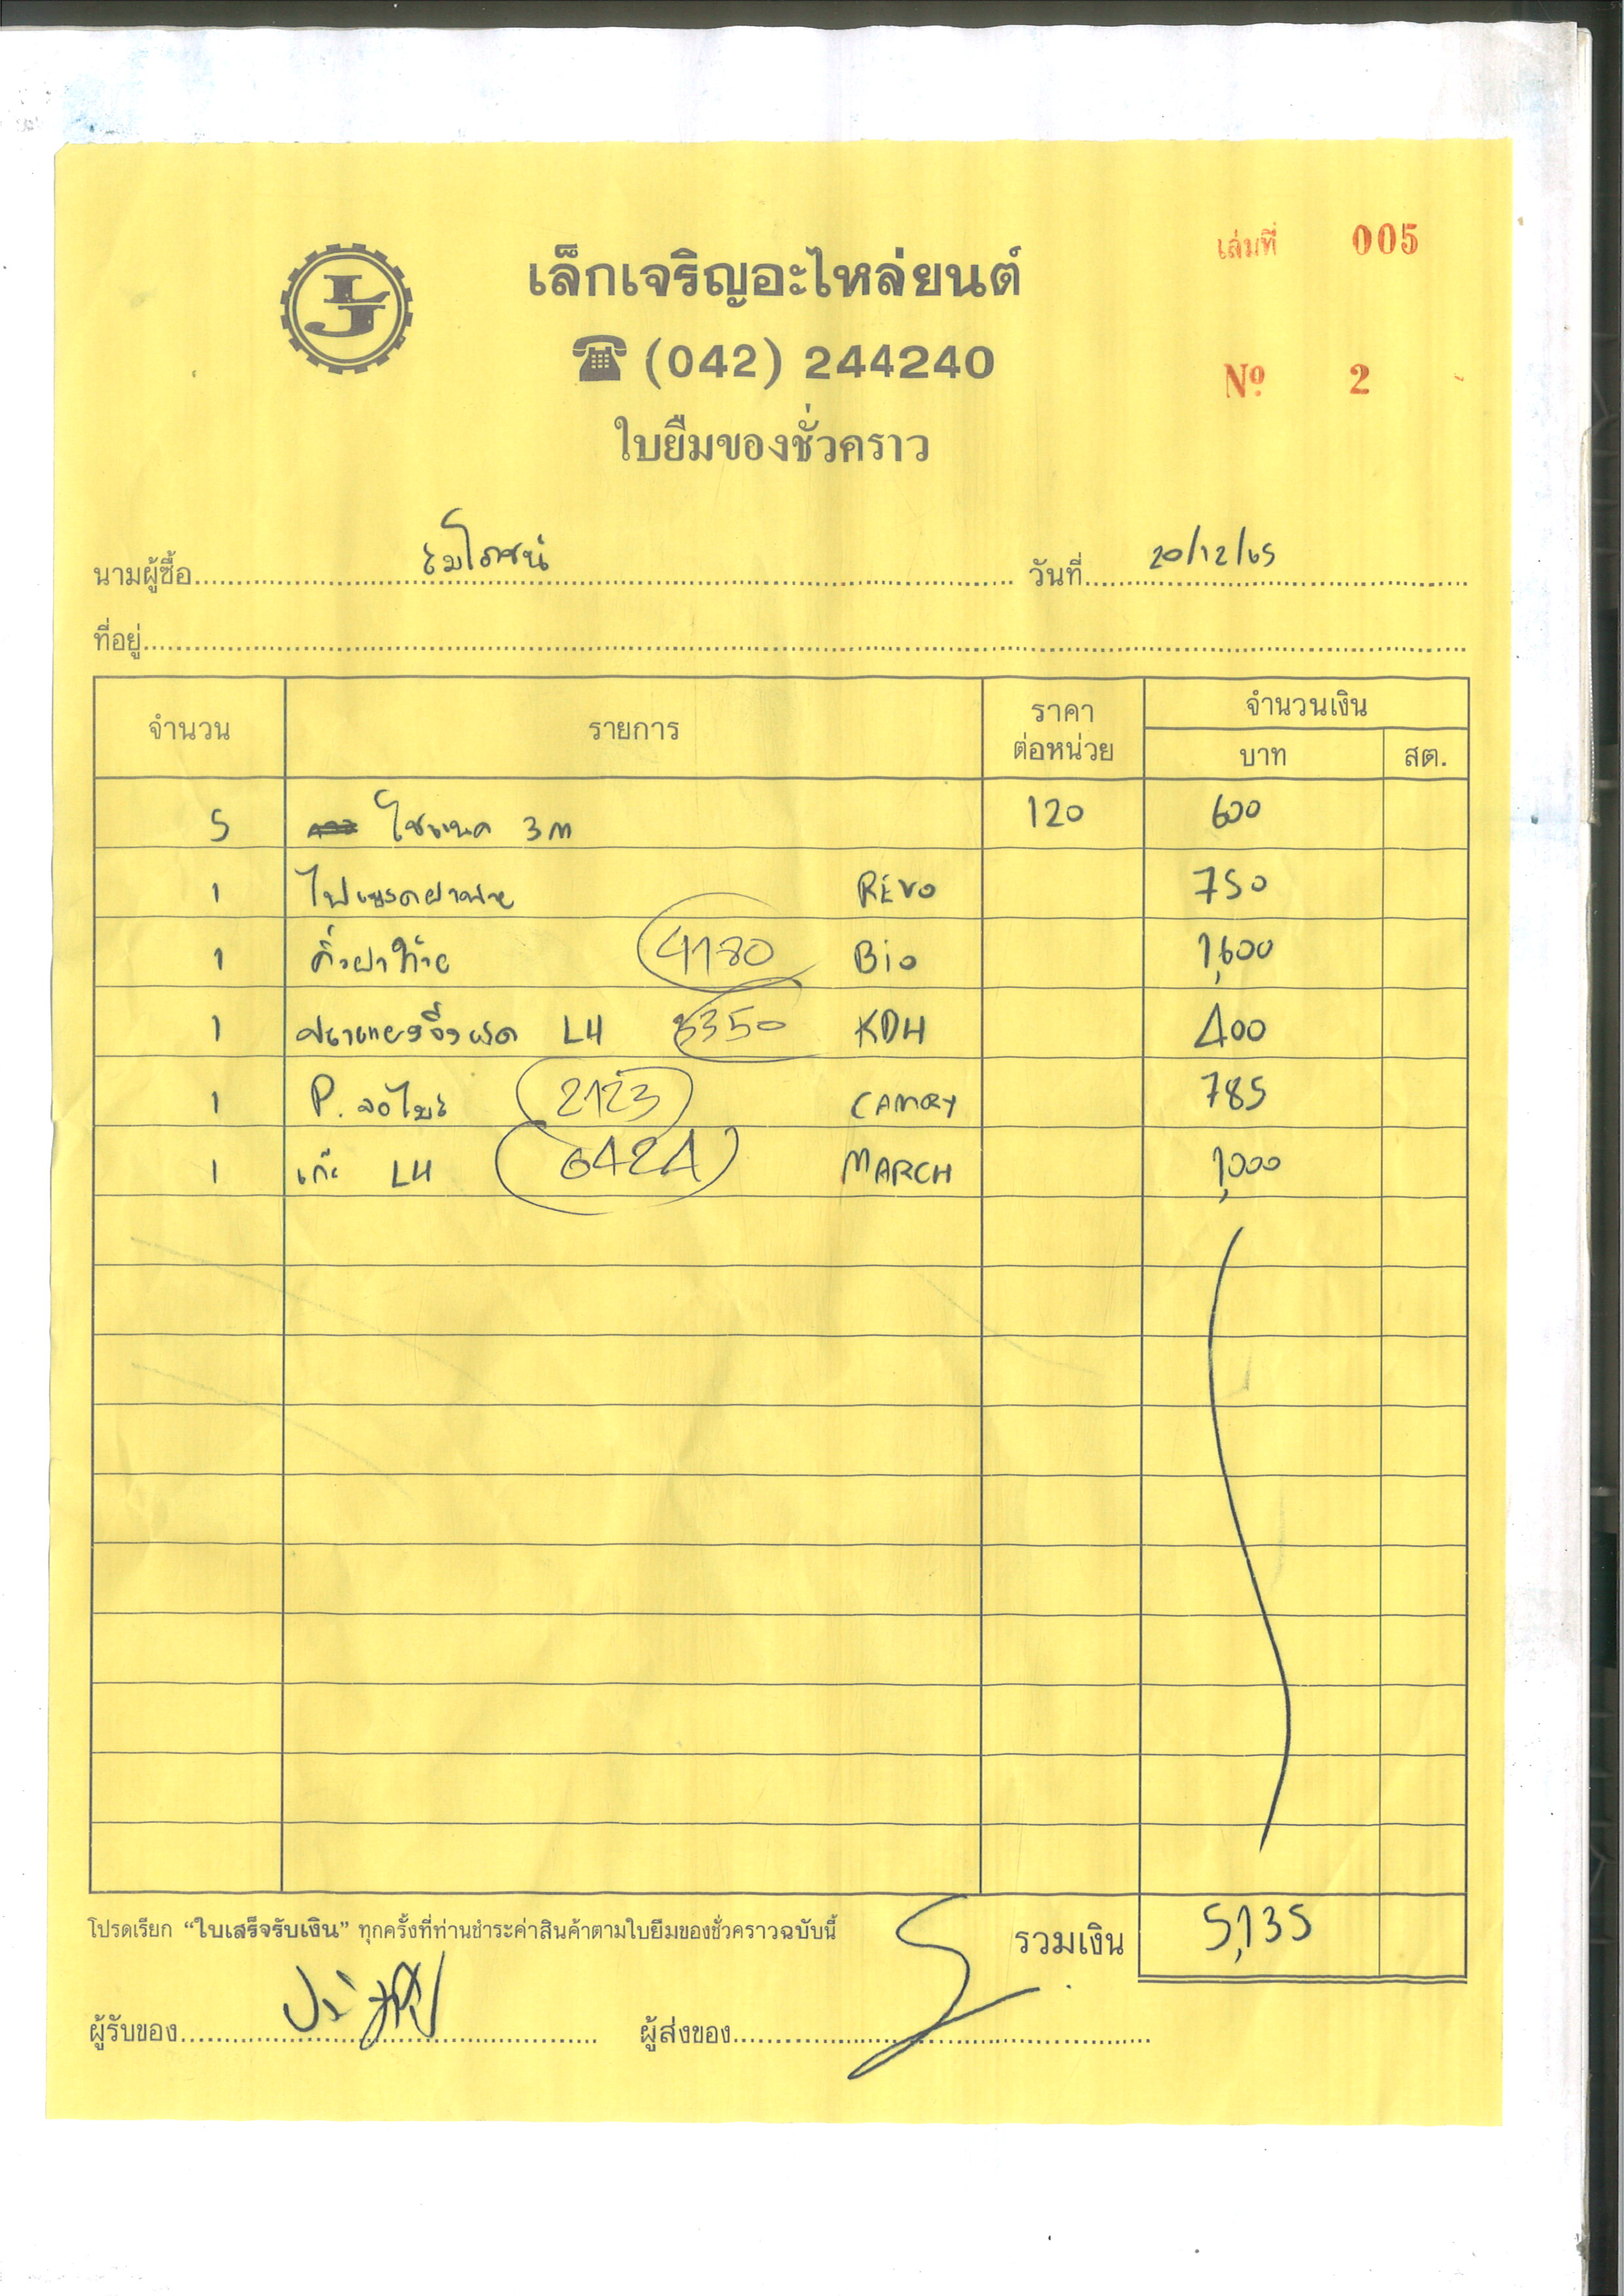 เล่มที่ 005
LJ
เล็กเจริญอะไหล่ยนต์
(042) 244240
Nº 2
ใบยืมของชั่วคราว
นามผู้ซื้อ วันที่ 20/12/65
ที่อยู่
จำนวน รายการ ราคาต่อหน่วย จำนวนเงิน
บาท สต.
5 3m 120 600
1 REVO 750
1 คิ้วฝาท้าย 4180 Bio 1,600
1 LH 3350 KDH 400
1 P. 2123 CAMRY 785
1 LH 6424 MARCH 1,000
โปรดเรียก “ใบเสร็จรับเงิน” ทุกครั้งที่ท่านชำระค่าสินค้าตามใบยืมของชั่วคราวฉบับนี้ รวมเงิน 5,135
ผู้รับของ ผู้ส่งของ